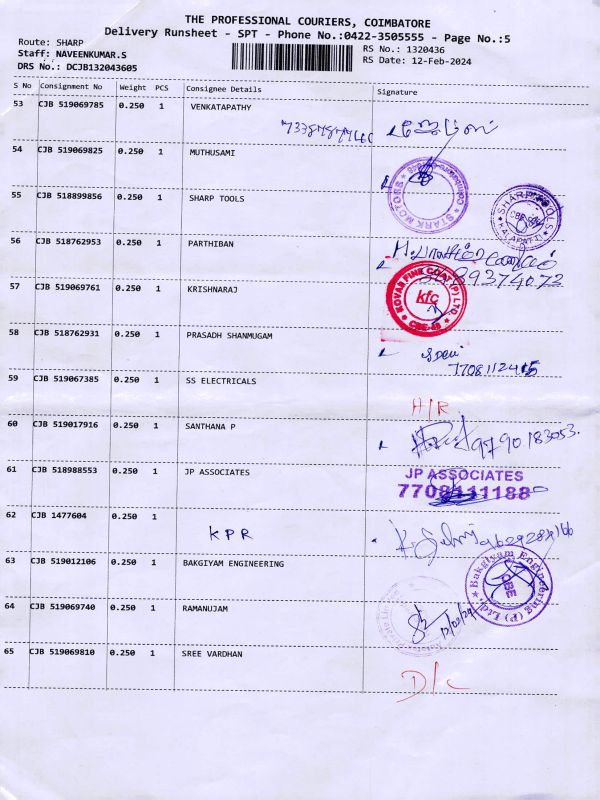 THE PROFESSIONAL COURIERS, COIMBATORE
Delivery Runsheet - SPT - Phone No.:0422-3505555 - Page No.:5
Route: SHARP
Staff: NAVEENKUMAR.S
DRS No.: DCJB132043605
RS No.: 1320436
RS Date: 12-Feb-2024
S No Consignment No Weight PCS Consignee Details Signature
53 CJB 519069785 0.250 1 VENKATAPATHY
54 CJB 519069825 0.250 1 MUTHUSAMI
STARK MOTORS
55 CJB 518899856 0.250 1 SHARP TOOLS
SHARP TOOLS KALAPATTI
56 CJB 518762953 0.250 1 PARTHIBAN
57 CJB 519069761 0.250 1 KRISHNARAJ
NOVAR FINE COAT (P) LTD.
kfc
CBE-48
58 CJB 518762931 0.250 1 PRASADH SHANMUGAM
59 CJB 519067385 0.250 1 SS ELECTRICALS
H/R
60 CJB 519017916 0.250 1 SANTHANA P
9790183053.
61 CJB 518988553 0.250 1 JP ASSOCIATES
JP ASSOCIATES
7708111188
62 CJB 1477604 0.250 1 KPR
63 CJB 519012106 0.250 1 BAKGIYAM ENGINEERING
Bakgiyam Engineering (P) Ltd.
CBE
64 CJB 519069740 0.250 1 RAMANUJAM
12/02/24
65 CJB 519069810 0.250 1 SREE VARDHAN
D/C